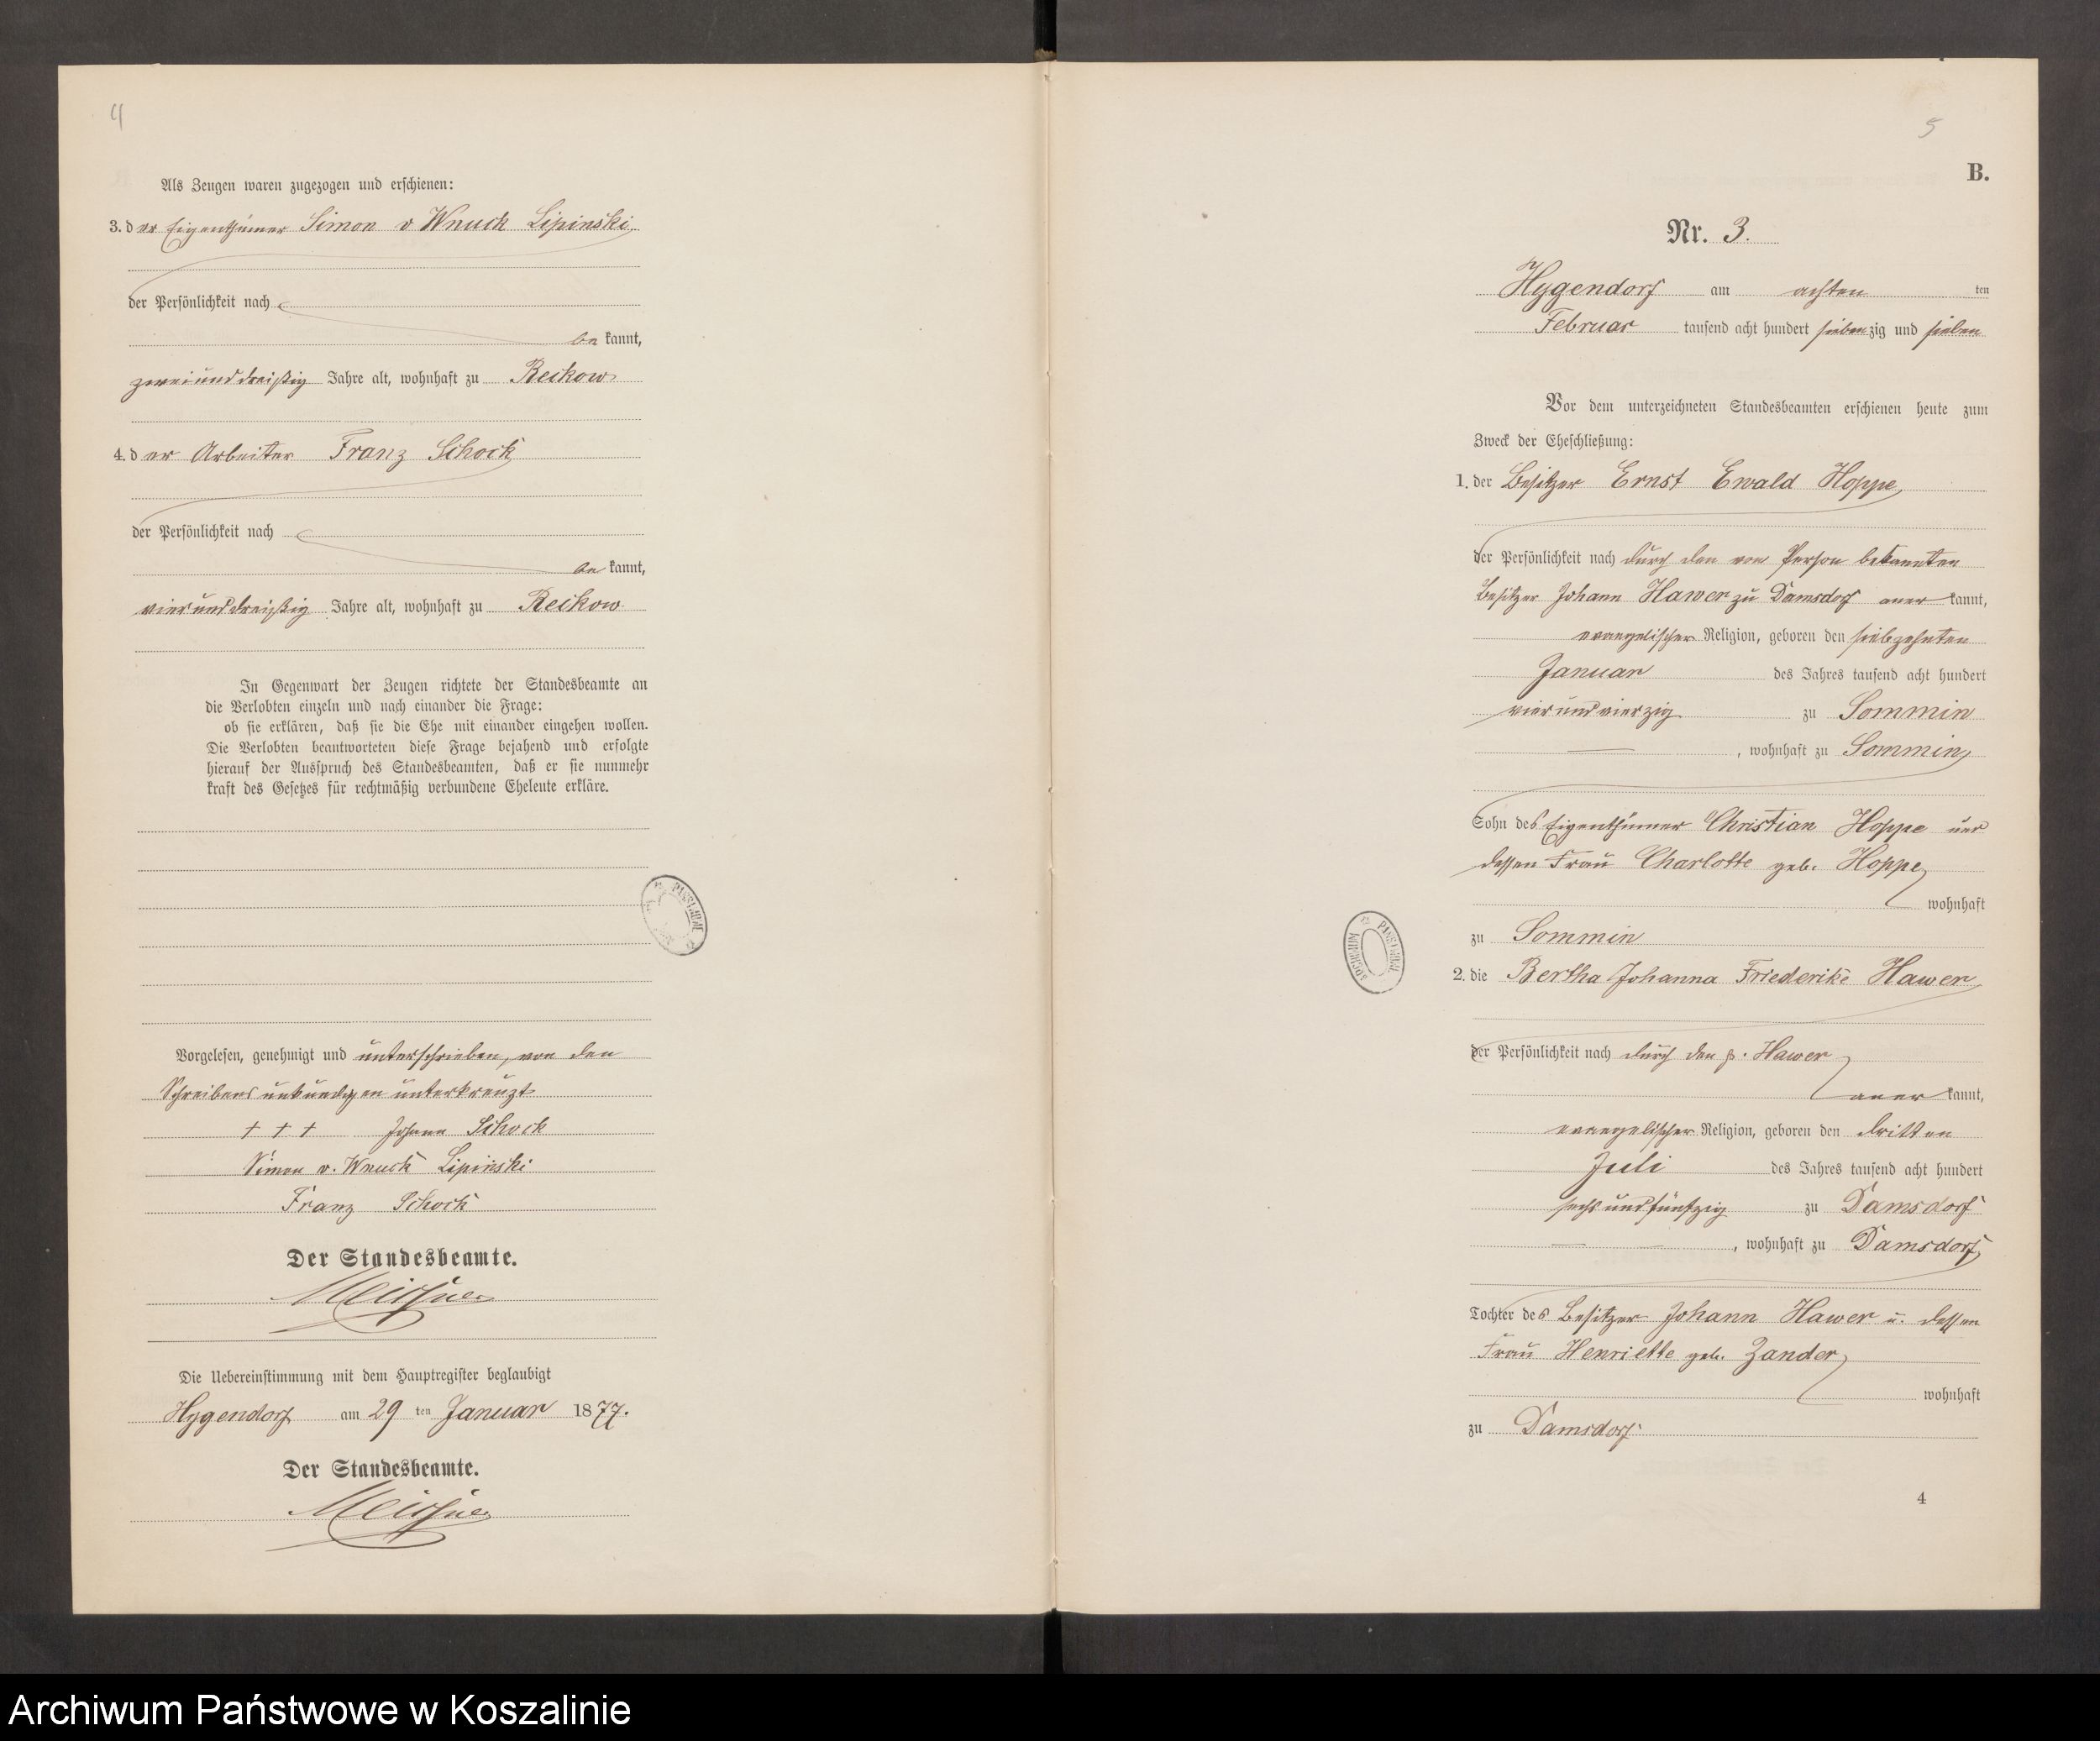 4
Als Zeugen waren zugezogen und erschienen:
3. der Eigenthümer Simon v Wnuck Lipinski
der Persönlichkeit nach
be kannt,
zweiunddreißig Jahre alt, wohnhaft zu Reckow
4. der Arbeiter Franz Schock
der Persönlichkeit nach
be kannt,
vierunddreißig Jahre alt, wohnhaft zu Reckow
In Gegenwart der Zeugen richtete der Standesbeamte an
die Verlobten einzeln und nach einander die Frage:
ob sie erklären, daß sie die Ehe mit einander eingehen wollen.
Die Verlobten beantworteten diese Frage bejahend und erfolgte
hierauf der Ausspruch des Standesbeamten, daß er sie nunmehr
kraft des Gesetzes für rechtmäßig verbundene Eheleute erkläre.
Vorgelesen, genehmigt und unterschrieben, von den
Schreibens unkundigen unterkreuzt
+ + + Johann Schock
Simon v. Wnuck Lipinski
Franz Schock
Der Standesbeamte.
Meissner
Die Uebereinstimmung mit dem Hauptregister beglaubigt
Hygendorf am 29 ten Januar 1877.
Der Standesbeamte.
Meissner
5
B.
Nr. 3.
Hygendorf am achten ten
Februar tausend acht hundert siebenzig und sieben
Vor dem unterzeichneten Standesbeamten erschienen heute zum
Zweck der Eheschließung:
1. der Besitzer Ernst Ewald Hoppe
der Persönlichkeit nach durch den von Person bekannten
Besitzer Johann Hawer zu Damsdorf aner kannt,
evangelischer Religion, geboren den siebzehnten
Januar des Jahres tausend acht hundert
vierundvierzig zu Sommin
, wohnhaft zu Sommin
Sohn des Eigenthümer Christian Hoppe und
dessen Frau Charlotte geb. Hoppe
wohnhaft
zu Sommin
2. die Bertha Johanna Friederike Hawer
der Persönlichkeit nach durch den p. Hawer
aner kannt,
evangelischer Religion, geboren den dritten
Juli des Jahres tausend acht hundert
sechsundfünfzig zu Damsdorf
, wohnhaft zu Damsdorf
Tochter des Besitzer Johann Hawer u. dessen
Frau Henriette geb. Zander
wohnhaft
zu Damsdorf
4
Archiwum Państwowe w Koszalinie